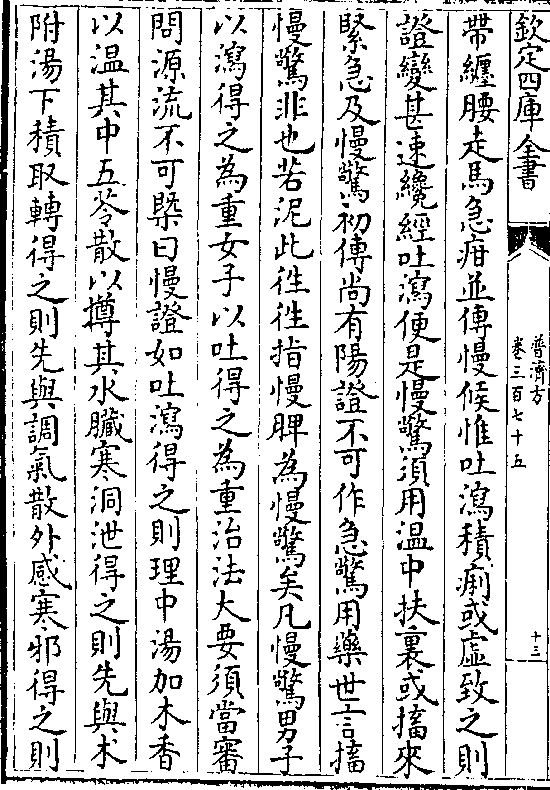 欽定四庫全書
普濟方
卷三百七十五
十三
帶纏腰走馬急疳並傳慢候惟吐瀉積痢或虛致之則
證變甚速纔經吐瀉便是慢驚須用温中扶裏或搐來
緊急及慢驚初傳尚有陽證不可作急驚用藥世言搐
慢驚非也若泥此徃徃指慢脾為慢驚矣凡慢驚男子
以瀉得之為重女子以吐得之為重治法大要須當審
問源流不可槩曰慢證如吐瀉得之則理中湯加木香
以温其中五苓散以撙其水臓寒洞泄得之則先與术
附湯下積取轉得之則先與調氣散外感寒邪得之則